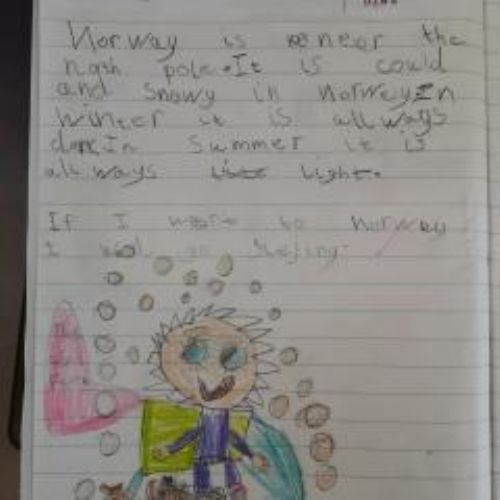 Norway is near the
noth pole. It is could
and snowy in norweyIn
winter it is all ways
darkIn summer it is
all ways light.
If I want to Norway
I